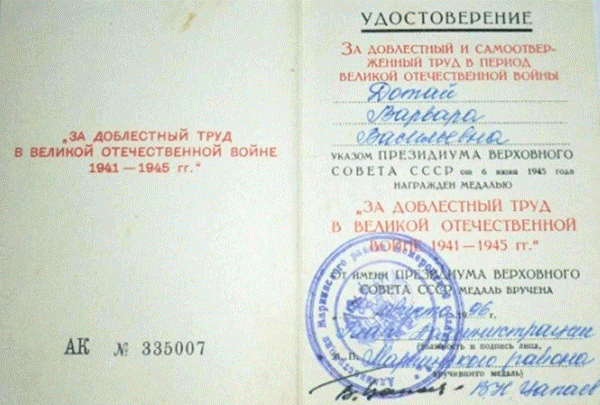 „ЗА ДОБЛЕСТНЫЙ ТРУД
В ВЕЛИКОЙ ОТЕЧЕСТВЕННОЙ ВОЙНЕ
1941—1945 гг.“
АК № 335007
УДОСТОВЕРЕНИЕ
ЗА ДОБЛЕСТНЫЙ И САМООТВЕР-
ЖЕННЫЙ ТРУД В ПЕРИОД
ВЕЛИКОЙ ОТЕЧЕСТВЕННОЙ ВОЙНЫ
Варвара
Васильевна
УКАЗОМ ПРЕЗИДИУМА ВЕРХОВНОГО
СОВЕТА СССР от 6 июня 1945 года
НАГРАЖДЕН МЕДАЛЬЮ
„ЗА ДОБЛЕСТНЫЙ ТРУД
В ВЕЛИКОЙ ОТЕЧЕСТВЕННОЙ
ВОЙНЕ 1941—1945 гг.“
От имени ПРЕЗИДИУМА ВЕРХОВНОГО
СОВЕТА СССР МЕДАЛЬ ВРУЧЕНА
августа 1996 г.
администрации
(должность и подпись лица,
М. П. Мариинского района
вручившего медаль)